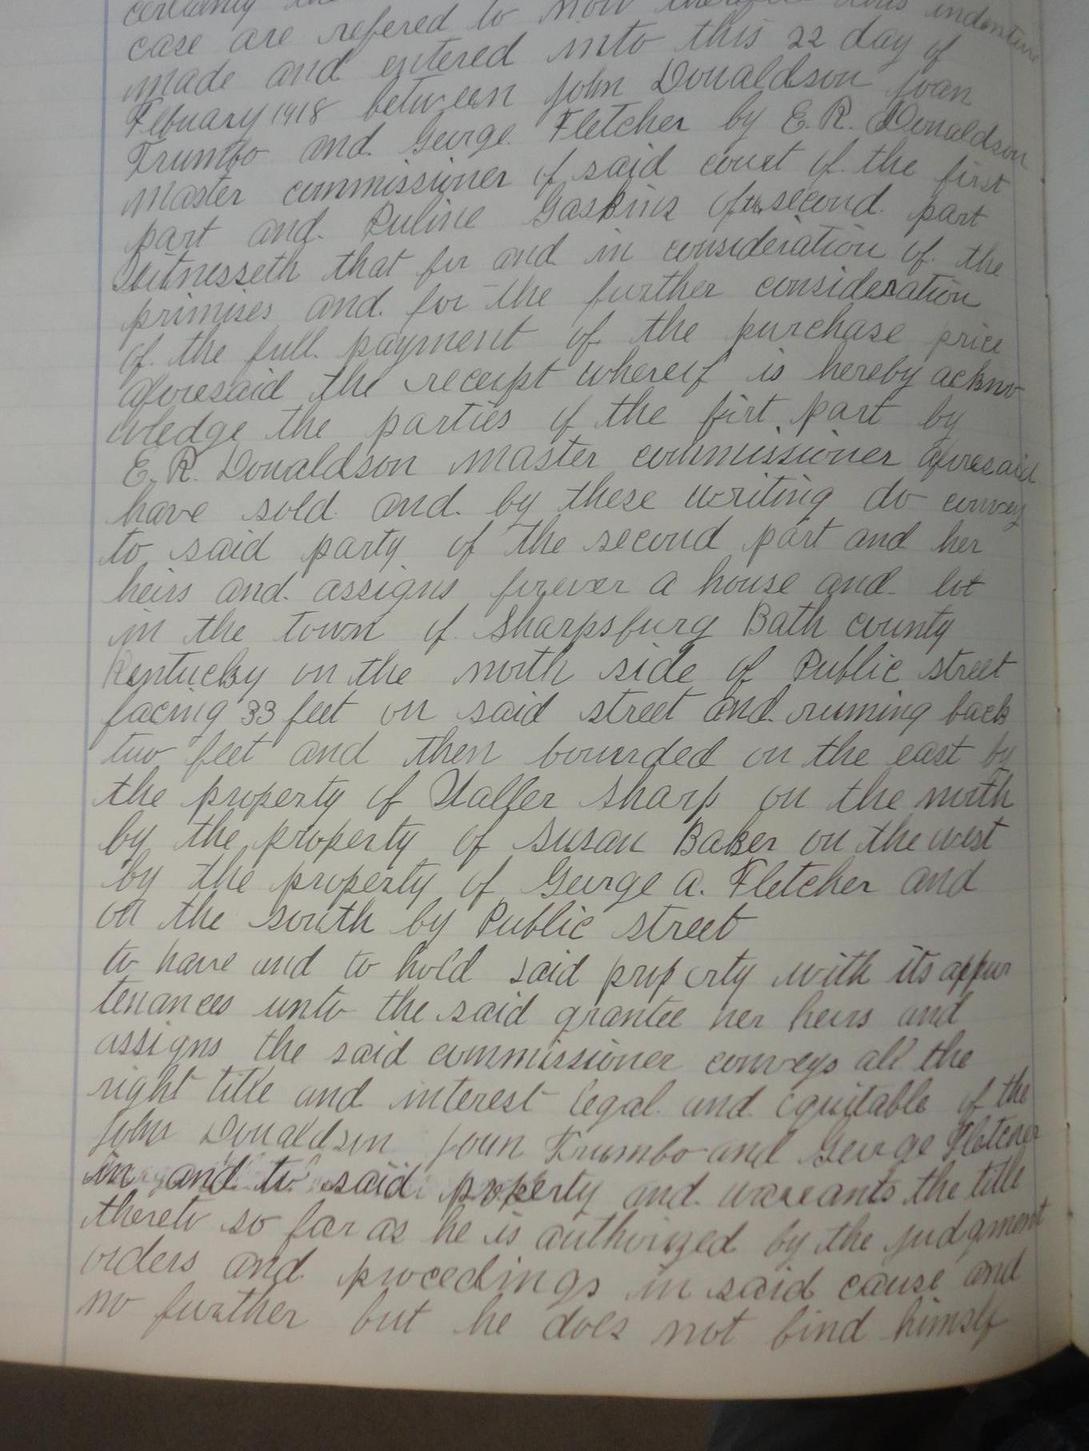 certainty the
case are refered to Now therefore this indenture
made and entered into this 22 day of
Febuary 1918 between John Donaldson Joan
Trumbo and George Fletcher by E. R. Donaldson
Master commissioner of said court of the first
part and Puline Gaskins of the second part
Witnesseth that for and in consideration of the
primises and for the further consideration
of the full payment of the purchase price
aforesaid the receipt whereof is hereby acknow
wledge the parties of the firt part by
E. R. Donaldson Master commissioner aforesaid
have sold and by these writing do convey
to said party of the second part and her
heirs and assigns forever a house and lot
in the town of Sharpsburg Bath county
Kentucky on the north side of Public street
facing 33 feet on said street and running back
two feet and then bounded on the east by
the property of Sharp on the north
by the property of Susan Baker on the west
by the property of George A. Fletcher and
on the south by Public street
to have and to hold said property with its appur
tenances unto the said grantee her heirs and
assigns the said commissioner conveys all the
right title and interest legal and equitable of the
John Donaldson Joan Trumbo and George Fletcher
in and to said property and warrants the title
thereto so far as he is authorized by the judgment
orders and procedings in said cause and
no further but he does not bind himslf